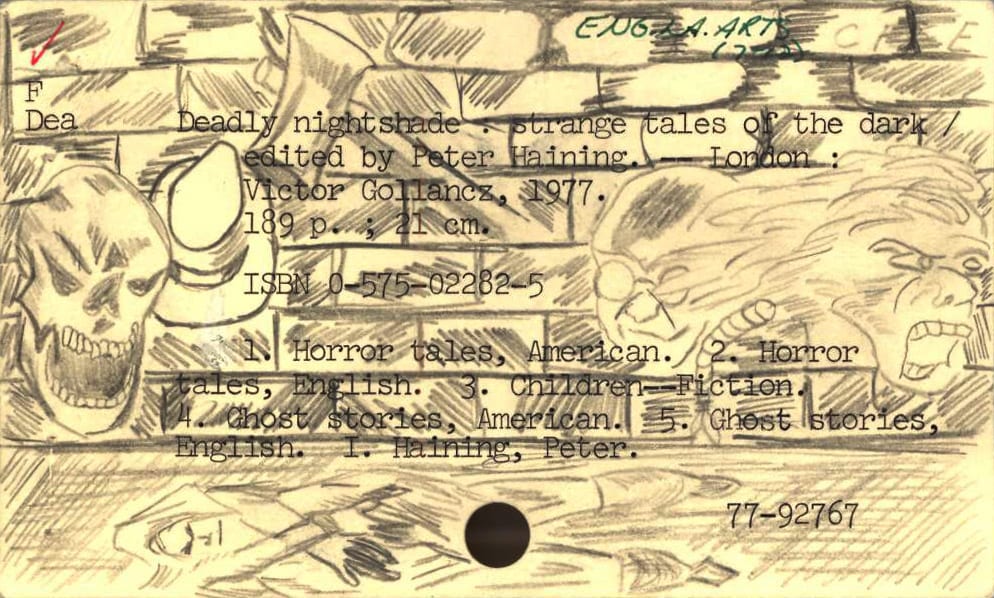 ENG.LA.ARTS
F
Dea Deadly nightshade : strange tales of the dark /
edited by Peter Haining. -- London :
Victor Gollancz, 1977.
189 p. ; 21 cm.
ISBN 0-575-02282-5
1. Horror tales, American. 2. Horror
tales, English. 3. Children--Fiction.
4. Ghost stories, American. 5. Ghost stories,
English. I. Haining, Peter.
77-92767